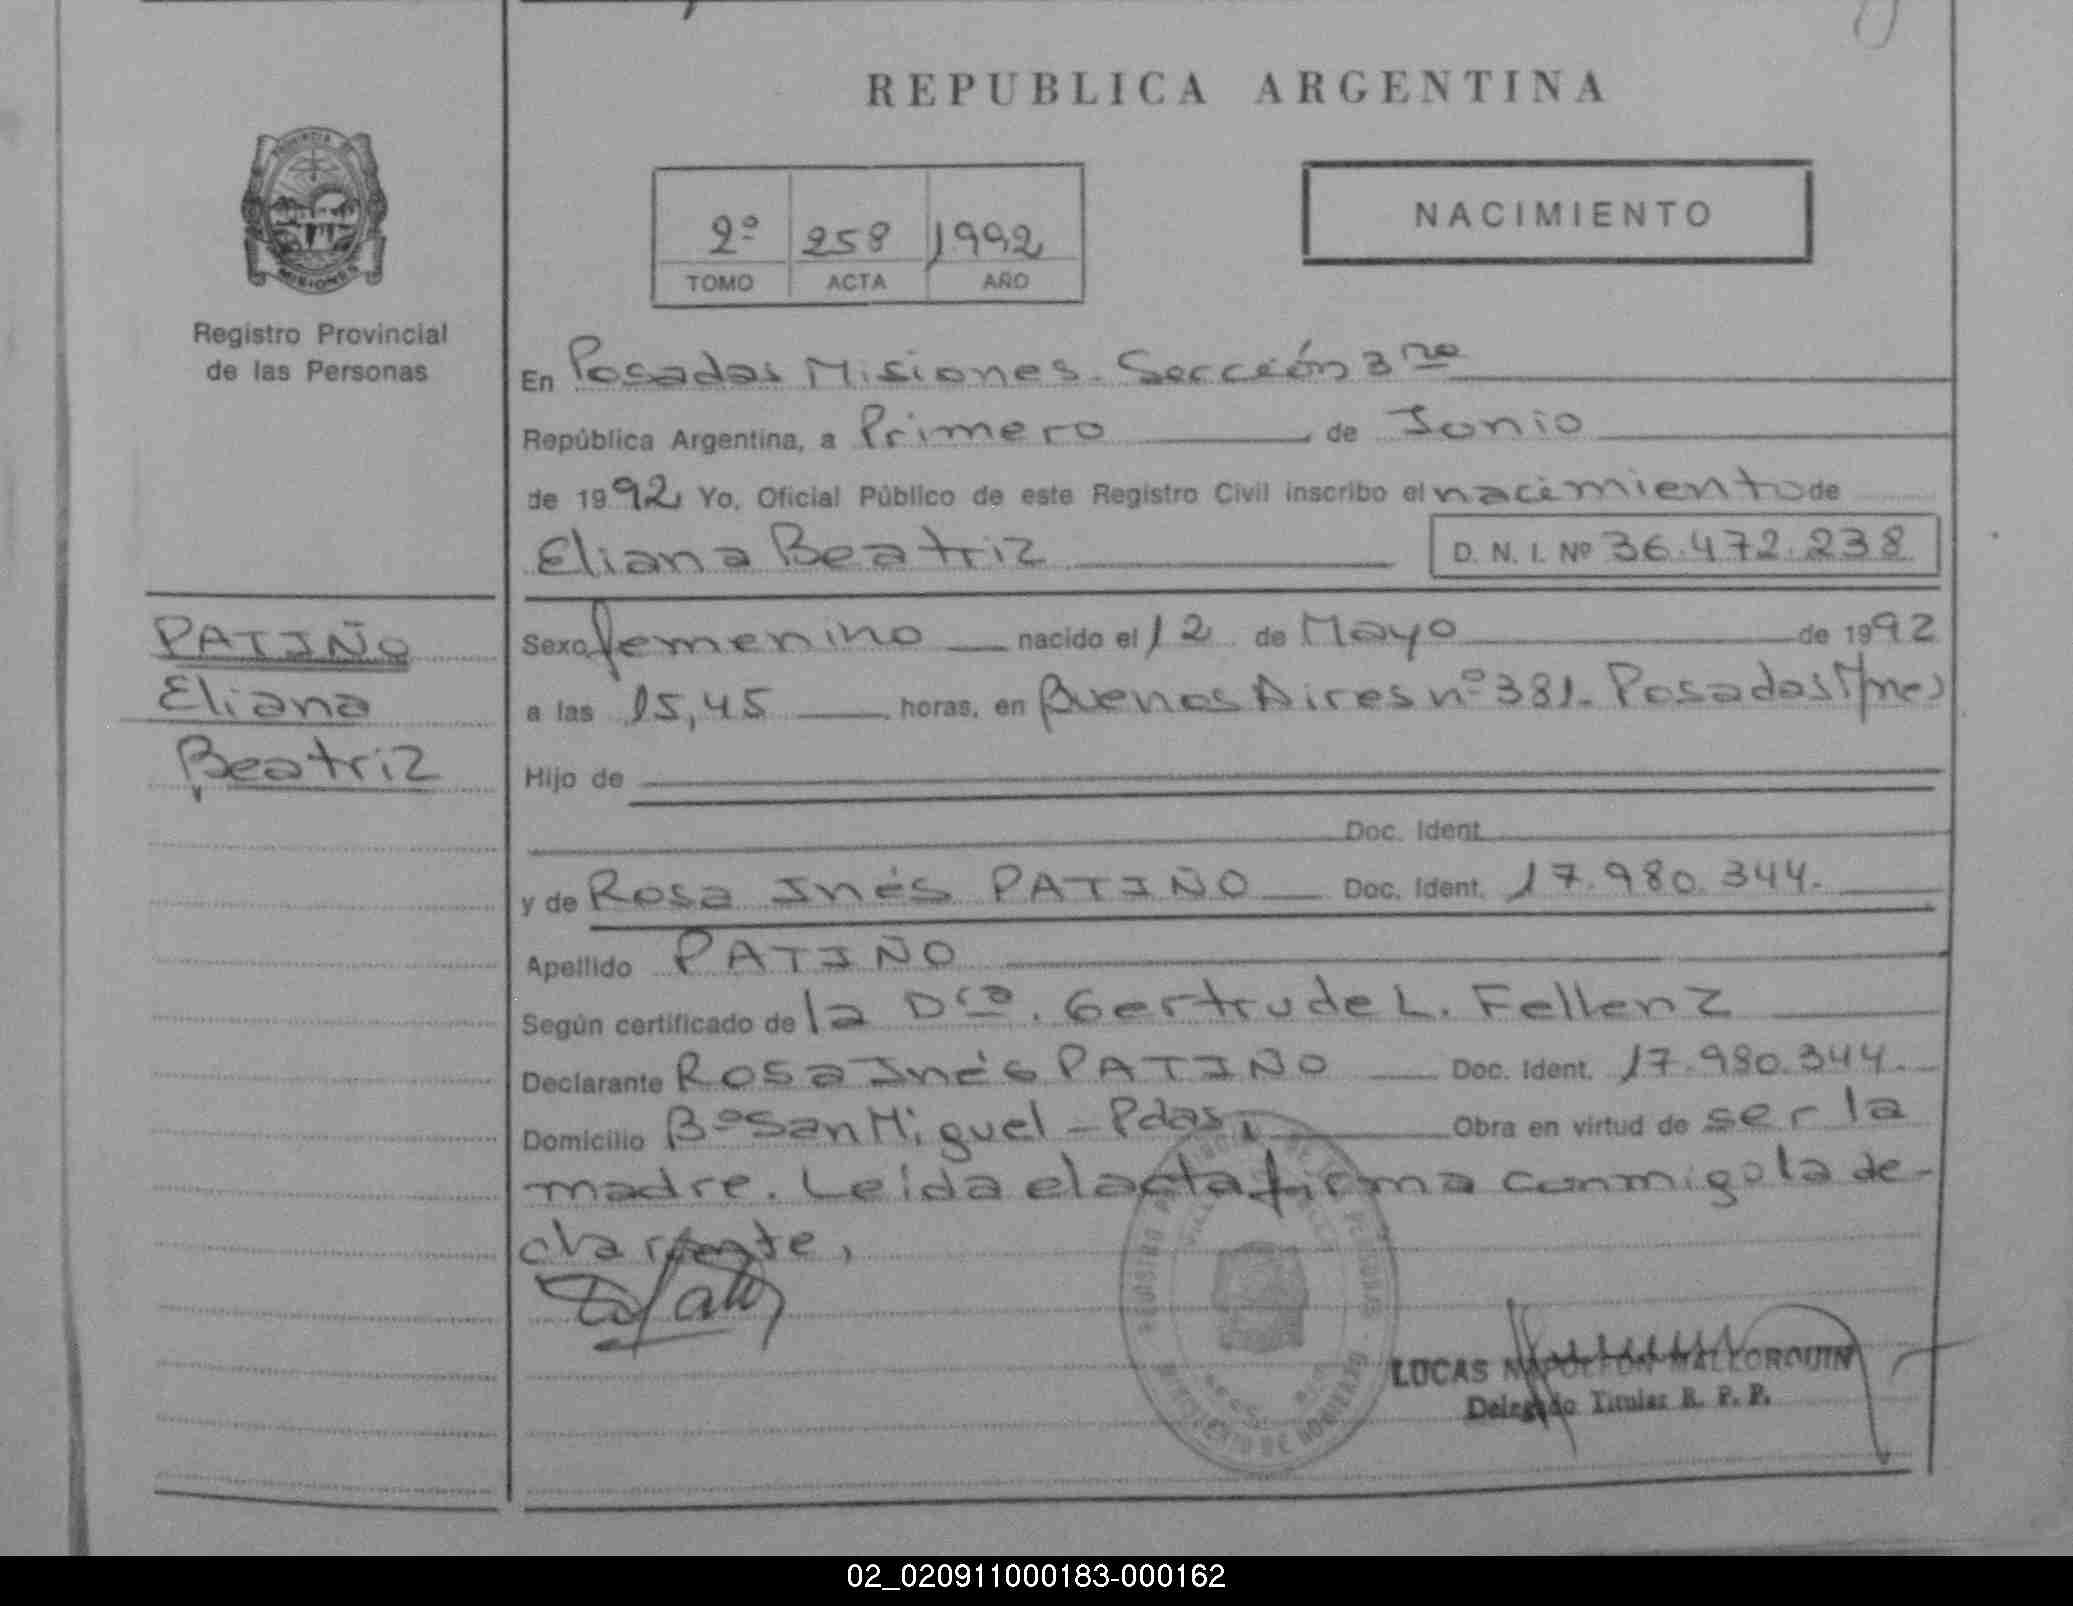 REPUBLICA ARGENTINA
PROVINCIA
MISIONES
Registro Provincial
de las Personas
2º 258 1992
TOMO ACTA AÑO
NACIMIENTO
En Posadas Misiones. Sección 3ra
República Argentina, a Primero de Junio
de 1992 Yo, Oficial Público de este Registro Civil inscribo el nacimiento de
Eliana Beatriz D. N. I. Nº 36.472.238
PATIÑO
Eliana
Beatriz
Sexo femenino nacido el 12 de Mayo de 1992
a las 15,45 horas, en Buenos Aires nº 381. Posadas Mnes
Hijo de
Doc. Ident.
y de Rosa Inés PATIÑO Doc. Ident. 17.980.344.
Apellido PATIÑO
Según certificado de la Dra. Gertrude L. Fellenz
Declarante Rosa Inés PATIÑO Doc. Ident. 17.980.344.
Domicilio Bº San Miguel - Pdas. Obra en virtud de ser la
madre. Leída el acta firma conmigo la de-
clarante,
LUCAS NAPOLEON MALLORQUIN
Delegado Titular R. P. P.
02_020911000183-000162